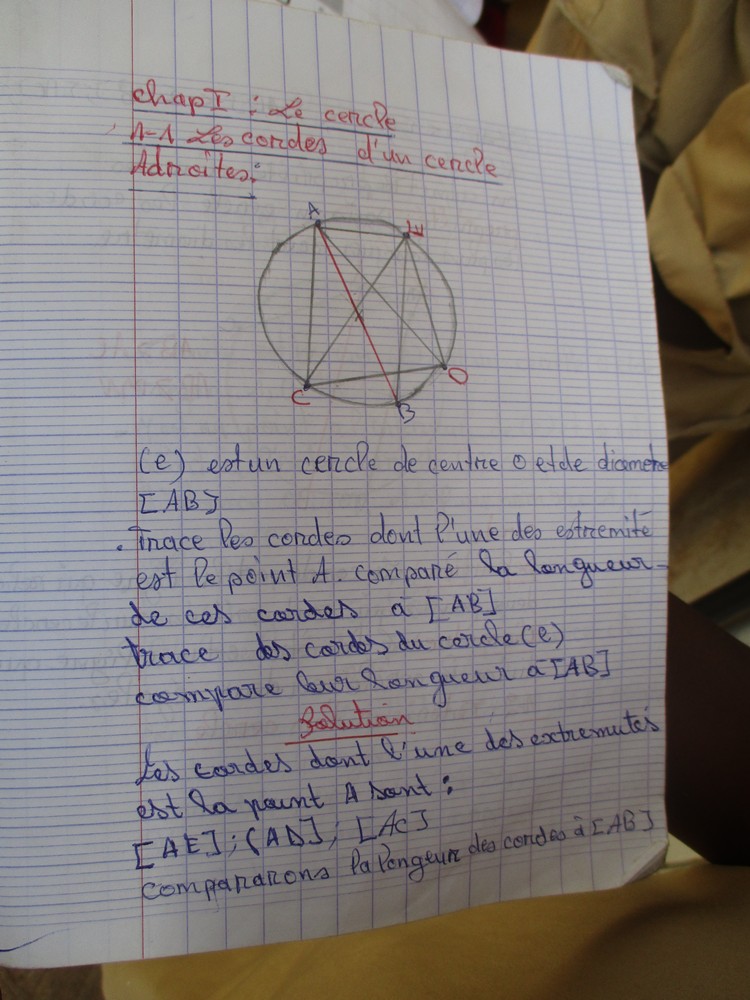 chap I : Le cercle
1-1 Les cordes d'un cercle
Adroites:
A
E
C
B
D
(e) est un cercle de centre O et de diametre
[AB]
. Trace les cordes dont l'une des estremité
est le point A. comparé la longueur
de ces cordes à [AB]
trace des cordes du cercle (e)
compare leur longueur à [AB]
Solution
Les cordes dont l'une des extremutés
est la point A sont :
[AE] ; (AD] ; [AC]
compararons la longeur des cordes à [AB]